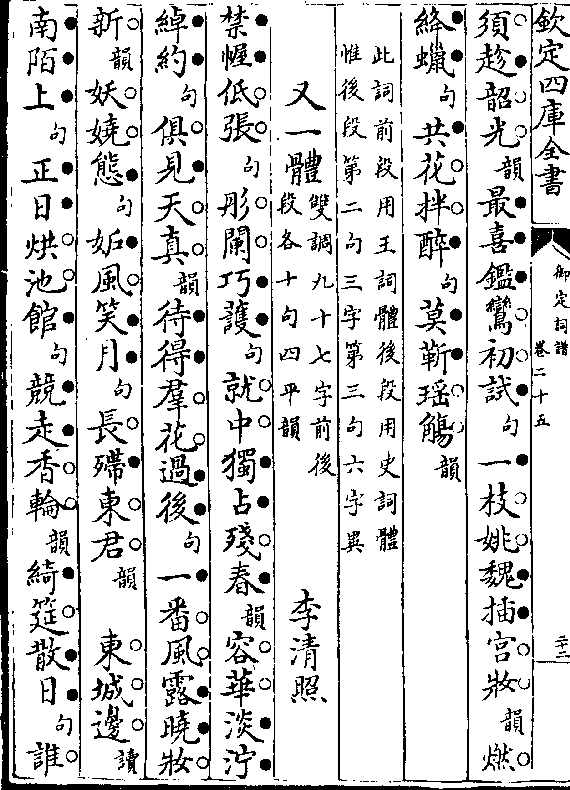 欽定四庫全書
御定詞譜
卷二十五
二十二
須趁韶光韻最喜鑑鸞初試句一枝姚魏插宫妝韻燃
絳蠟句共花拌醉句莫靳瑶觴韻
此詞前段用王詞體後段用史詞體
惟後段第二句三字第三句六字異
又一體雙調九十七字前後
段各十句四平韻
李清照
禁幄低張句彤闌巧護句就中獨占殘春韻容華淡泞
綽約句俱見天真韻待得羣花過後句一番風露曉妝
新韻妖嬈態句妬風笑月句長殢東君韻東城邊讀
南陌上句正日烘池館句競走香輪韻綺筵散日句誰